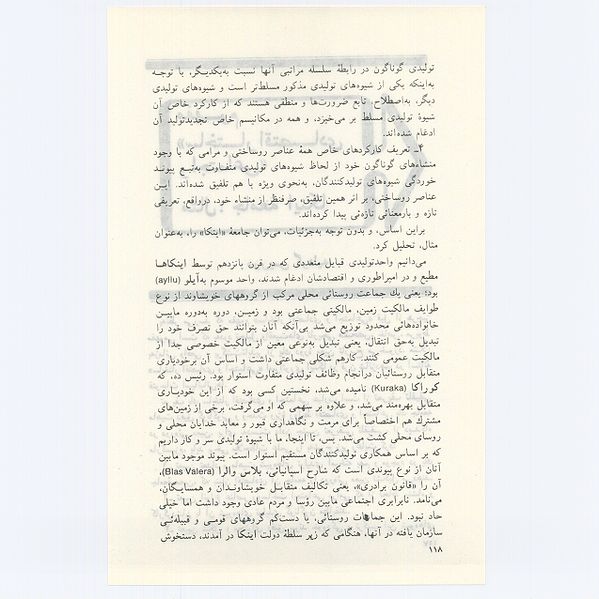 تولیدی گوناگون در رابطهٔ سلسله مراتبی آنها نسبت به‌یکدیگر، با توجه
به‌اینکه یکی از شیوه‌های تولیدی مذکور مسلط‌تر است و شیوه‌های تولیدی
دیگر، به‌اصطلاح، تابع ضرورت‌ها و منطقی هستند که از کارکرد خاص آن
شیوهٔ تولیدی مسلط بر می‌خیزد، و همه در مکانیسم خاص تجدیدتولید آن
ادغام شده‌اند.
۴ـ تعریف کارکردهای خاص همهٔ عناصر روساختی و مرامی که با وجود
منشاءهای گوناگون خود از لحاظ شیوه‌های تولیدی متفاوت به‌تبع پیوند
خوردگی شیوه‌های تولیدکنندگان، به‌نحوی ویژه با هم تلفیق شده‌اند. این
عناصر روساختی، بر اثر همین تلفیق، صرفنظر از منشاء خود، درواقع، تعریفی
تازه و بارمعنائی تازه‌ئی پیدا کرده‌اند.
براین اساس، و بدون توجه به‌جزئیات، می‌توان جامعهٔ «اینکا» را، به‌عنوان
مثال، تحلیل کرد.
می‌دانیم واحدتولیدی قبایل متعددی که در قرن پانزدهم توسط اینکاها
مطیع و در امپراطوری و اقتصادشان ادغام شدند، واحد موسوم به‌آیلو (ayllu)
بود؛ یعنی یك جماعت روستائی محلی مرکب از گروههای خویشاوند از نوع
طوایف مالکیت زمین، مالکیتی جماعتی بود و زمین، دوره به‌دوره مابین
خانواده‌هائی محدود توزیع می‌شد بی‌آنکه آنان بتوانند حق تصرف خود را
تبدیل به‌حق انتقال، یعنی تبدیل به‌نوعی معین از مالکیت خصوصی جدا از
مالکیت عمومی کنند. کارهم شکلی جماعتی داشت و اساس آن برخودیاری
متقابل روستائیان درانجام وظائف تولیدی متفاوت استوار بود. رئیس ده، که
کوراکا (Kuraka) نامیده می‌شد، نخستین کسی بود که از این خودیاری
متقابل بهره‌مند می‌شد، و علاوه بر سهمی که او می‌گرفت، برخی از زمین‌های
مشترك هم اختصاصاً برای مرمت و نگاهداری قبور و معابد خدایان محلی و
روسای محلی کشت می‌شد. پس، تا اینجا، ما با شیوهٔ تولیدی سر و کار داریم
که بر اساس همکاری تولیدکنندگان مستقیم استوار است. پیوند موجود مابین
آنان از نوع پیوندی است که شارح اسپانیائی، بلاس والرا (Blas Valera)،
آن را «قانون برادری»، یعنی تکالیف متقابل خویشاوندان و همسایگان،
می‌نامد. نابرابری اجتماعی مابین رؤسا و مردم عادی وجود داشت اما خیلی
حاد نبود. این جماعات روستائی، یا دست‌کم گروههای قومی و قبیله‌ئی
سازمان یافته در آنها، هنگامی که زیر سلطهٔ دولت اینکا در آمدند، دستخوش
۱۱۸